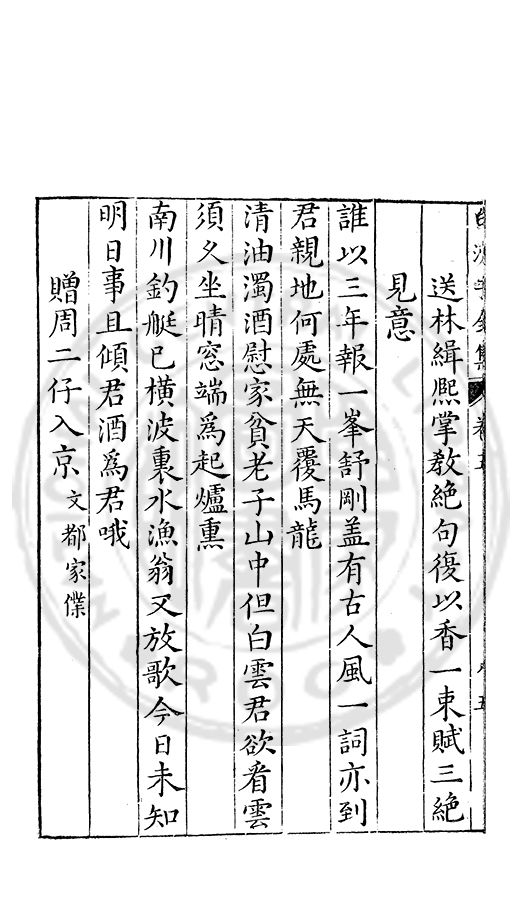 送林緝熙掌教絶句復以香一束賦三絶
見意
誰以三年報一峯舒剛盖有古人風一詞亦到
君親地何處無天覆馬龍
清油濁酒慰家貧老子山中但白雲君欲看雲
須久坐晴窓端爲起爐熏
南川釣艇已橫波裏水漁翁又放歌今日未知
明日事且傾君酒爲君哦
贈周二仔入京文都家僕